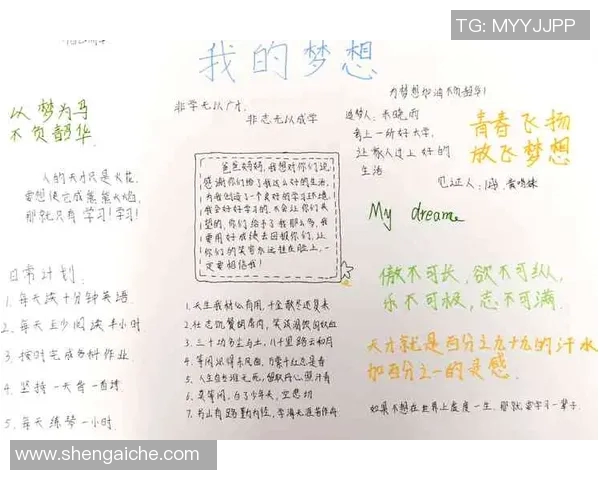 TG: MYYJJPP
我的梦想
以梦为马
不负韶华
非学无以广才
非志无以成学
为梦想加油不负韶华!
追梦人:
考上一所好大学,
让家人过上好的
生活
见证人:
青春飞扬
放飞梦想
人的天才只是火花,
要想使它成熊熊火焰,
那就只有学习!学习!
爸爸妈妈,我想对你们说,
感谢你们给了我这么好的生活,
为我创造了一个良好的学习环境,
我会好好学习的,不会让你们失
望的,你们给予了我那么多,我
要用好成绩去回报你们,让
你们的笑容永远挂在脸上,一
定要相信我!
My dream
日常计划
1. 每天读十分钟英语.
2. 每天至少阅读半小时.
3. 按时完成各科作业
4. 坚持一天背一首诗
5. 每天练琴一小时.
1. 天生我材必有用,千金散尽还复来
2. 壮志饥餐胡虏肉,笑谈渴饮匈奴血
3. 三十功名尘与土,八千里路云和月
4. 等闲识得东风面,万紫千红总是春
5. 人生自古谁无死,留取丹心照汗青
6. 莫等闲,白了少年头,空悲切
7. 书山有路勤为径,学海无涯苦作舟
傲不可长,欲不可纵,
乐不可极,志不可满.
天才就是百分之九十九的汗水
加百分之一的灵感.
如果不想在世界上虚度一生,那就要学习一辈子.
www.shengaiche.com